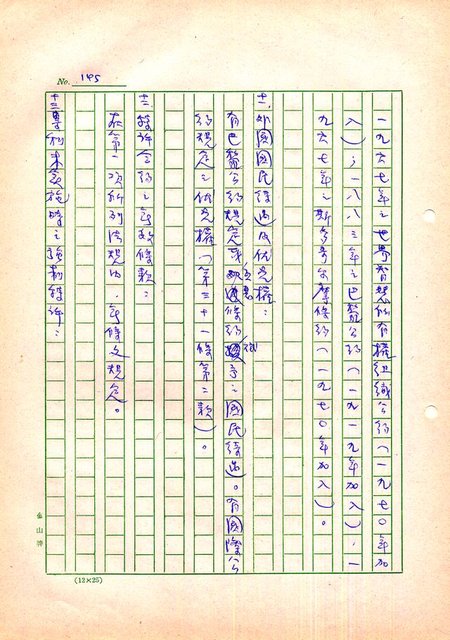 No. 145
一九六七年之世界智慧所有權組織公約（一九七○年加
入）；一八八三年之巴黎公約（一九一九年加入）；一
九六七年之斯多哥爾摩修約（一九七○年加入）。
十一、外國國民待遇及優先權：
有巴黎公約規定或互惠條約授予之國民待遇。有國際公
約規定之優先權（第三十一條第二款）。
十二、特許合約之無效條款：
在第一項所列法規內，無條文規定。
十三、專利未實施時之強制特許：
金山牌
(12×25)